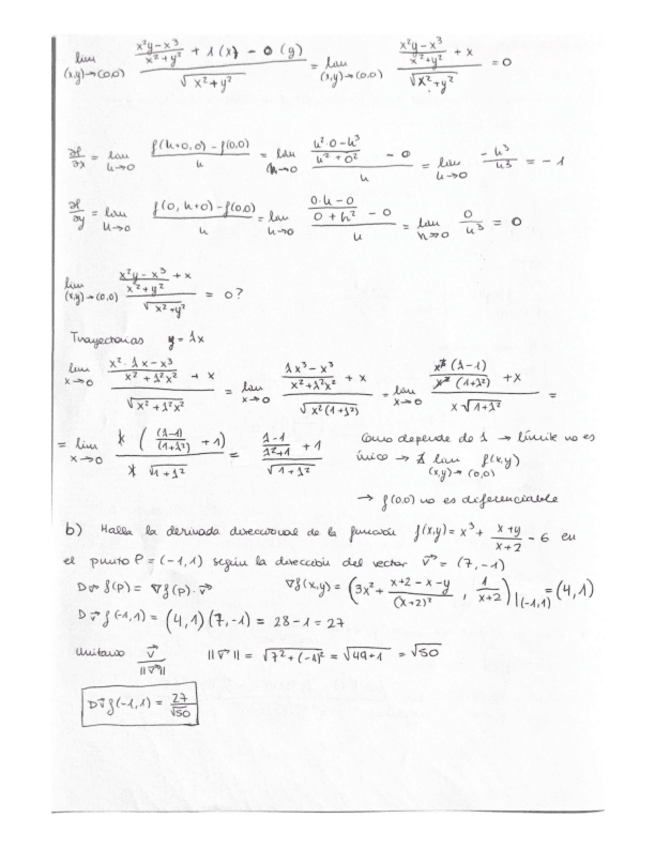 lim (x,y)→(0,0) ((x²y-x³)/(x²+y²) + 1(x) - 0(y))/√(x²+y²) = lim (x,y)→(0,0) ((x²y-x³)/(x²+y²) + x)/√(x²+y²) = 0
∂f/∂x = lim h→0 (f(h+0,0) - f(0,0))/h = lim h→0 ((h²·0-h³)/(h²+0²) - 0)/h = lim h→0 -h³/h³ = -1
∂f/∂y = lim h→0 (f(0,h+0) - f(0,0))/h = lim h→0 ((0·h-0)/(0+h²) - 0)/h = lim h→0 0/h³ = 0
lim (x,y)→(0,0) ((x²y-x³)/(x²+y²) + x)/√(x²+y²) = 0?
Trayectorias y=λx
lim x→0 ((x²·λx-x³)/(x²+λ²x²) + x)/√(x²+λ²x²) = lim x→0 ((λx³-x³)/(x²+λ²x²) + x)/√(x²(1+λ²)) = lim x→0 (x³(λ-1)/(x²(1+λ²)) + x)/(x√(1+λ²)) =
= lim x→0 x((λ-1)/(1+λ²) + 1)/(x√(1+λ²)) = ((λ-1)/(λ²+1) + 1)/√(1+λ²) Como depende de λ → límite no es
único → ∄ lim (x,y)→(0,0) f(x,y)
→ f(0,0) no es diferenciable
b) Halla la derivada direccional de la función f(x,y) = x³ + (x+y)/(x+2) - 6 en
el punto P=(-1,1) según la dirección del vector v⃗ = (7,-1)
Dv⃗ f(P) = ∇f(P)·v⃗ ∇f(x,y) = (3x² + (x+2-x-y)/(x+2)², 1/(x+2))|(-1,1) = (4,1)
Dv⃗ f(-1,1) = (4,1)(7,-1) = 28-1 = 27
Unitario v⃗/||v⃗|| ||v⃗|| = √(7²+(-1)²) = √(49+1) = √50
Dv⃗ f(-1,1) = 27/√50